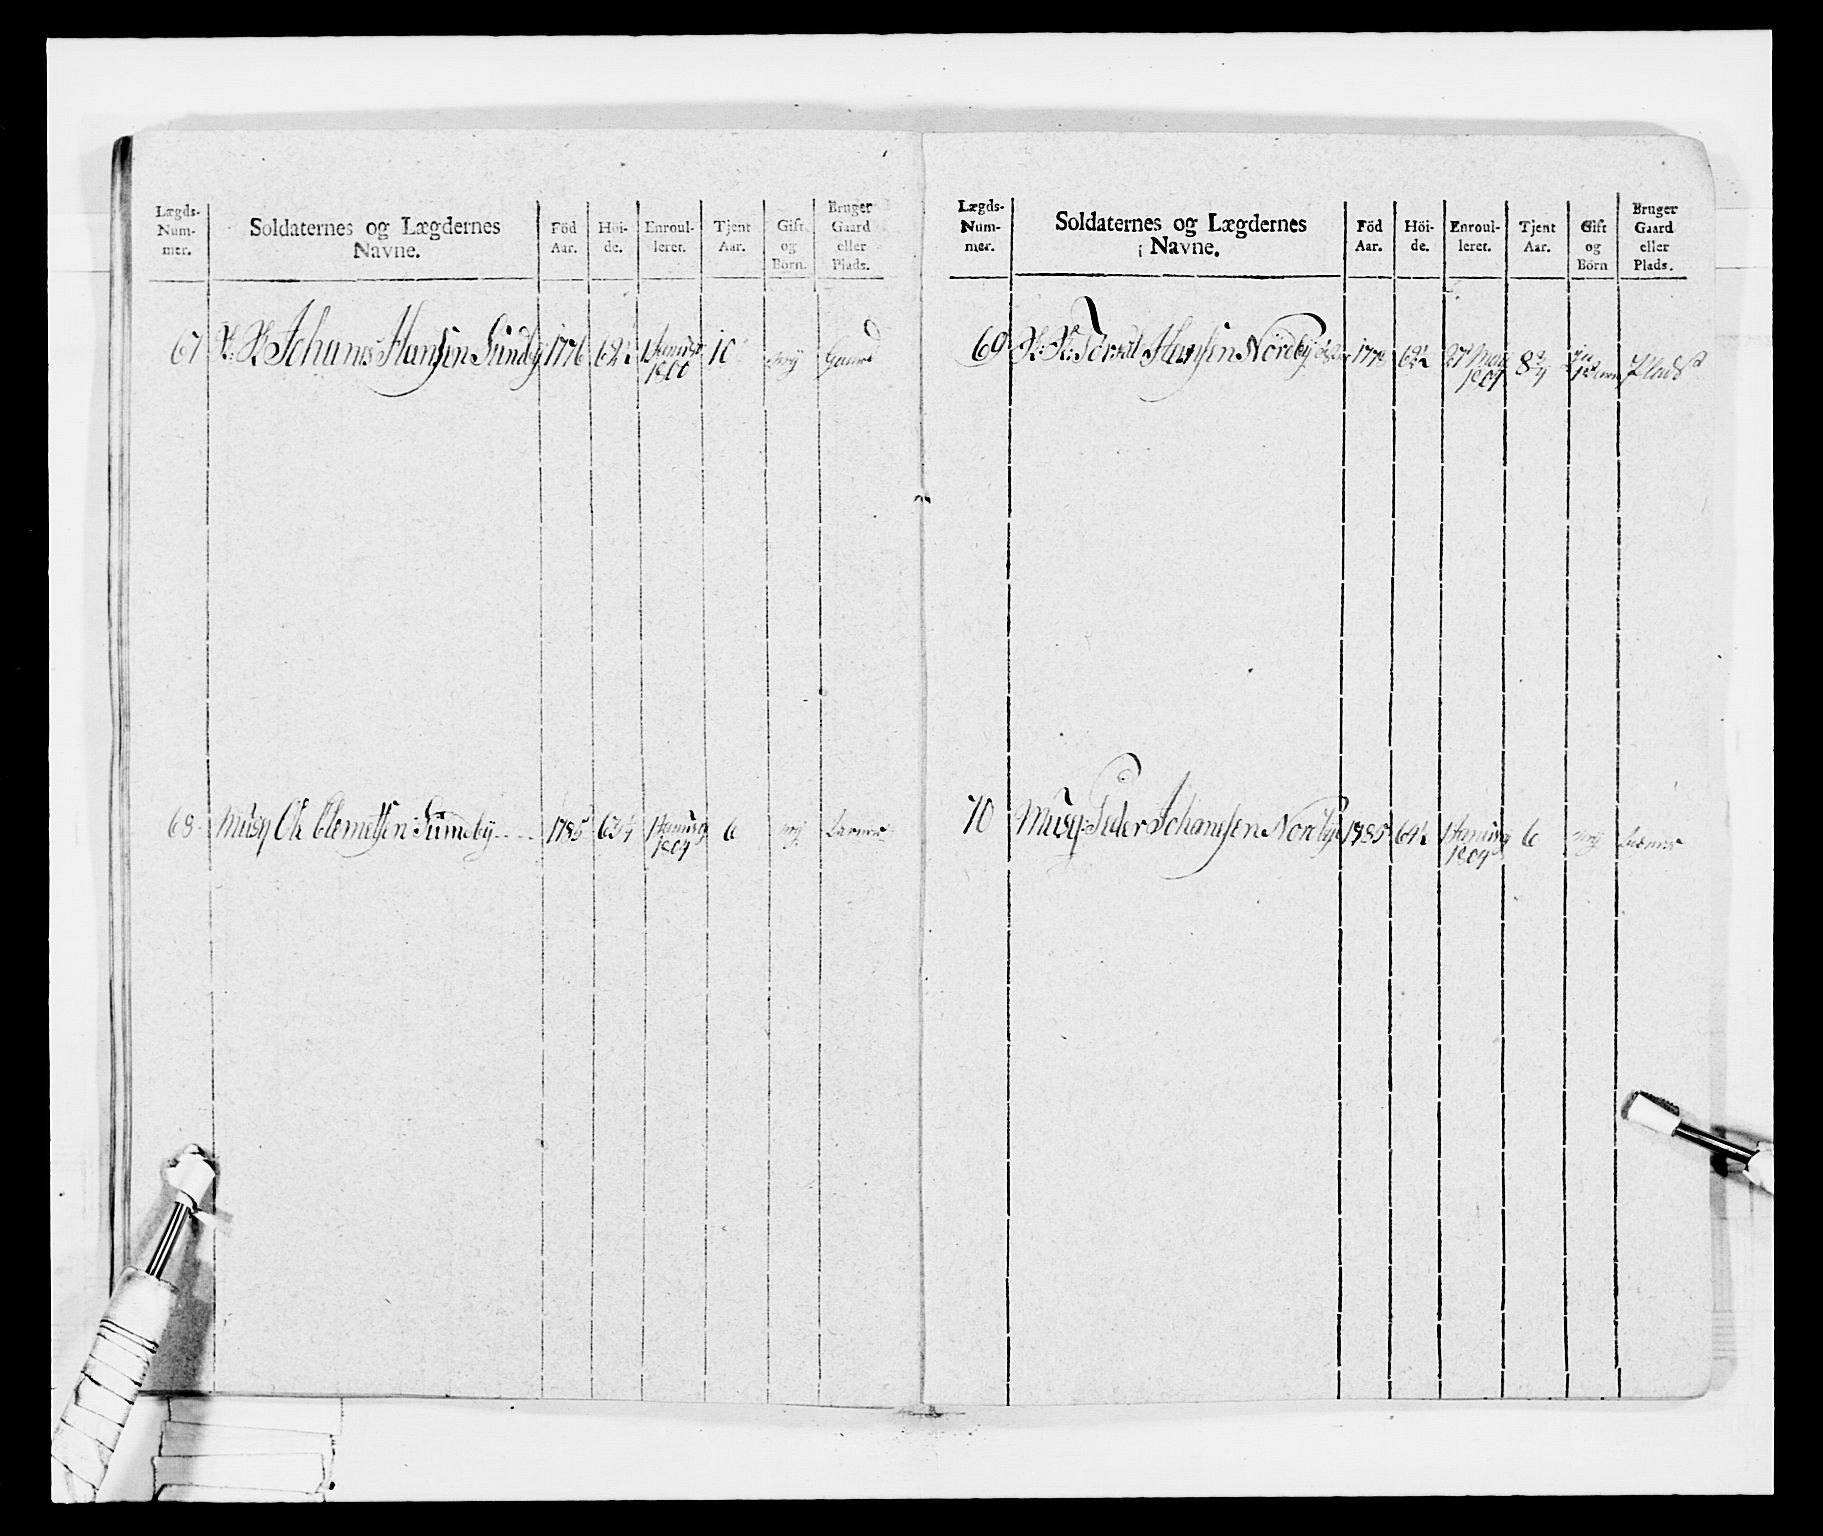 Lægds-
Num-
mer.
Soldaternes og Lægdernes
Navne.
Föd
Aar.
Höi-
de.
Enroul-
leret.
Tjent
Aar.
Gift
og
Börn.
Bruger
Gaard
eller
Plads.
67 Johanes Hansen Sundby 1776 62½ 1 Januar 10 Gaard
1800
68 Musq Ole Clemetsen Sundby 1785 1 Januar 6
1804
Lægds-
Num-
mer.
Soldaternes og Lægdernes
Navne.
Föd
Aar.
Höi-
de.
Enroul-
leret.
Tjent
Aar.
Gift
og
Börn
Bruger
Gaard
eller
Plads.
69 Hansen Nordby 62½ 27 May 8¾ Plads
70 Musq: Peder Johanesen Nordby 1785 64½ 1 Januar 6
1804